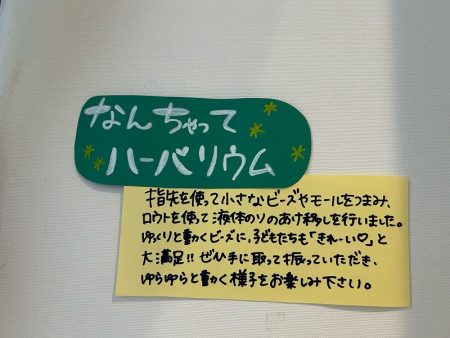 なんちゃって
ハーバリウム
指先を使って小さなビーズやモールをつまみ、
ロウトを使って液体のソのあけ移しを行いました。
ゆっくりと動くビーズに、子どもたちも「きれーい♡」と
大満足!! ぜひ手に取って振っていただき、
ゆらゆらと動く様子をお楽しみ下さい。